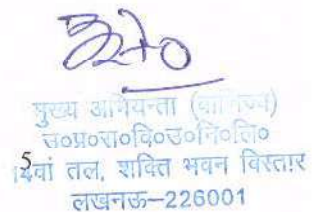 मुख्य अभियन्ता (वाणिज्य)
उ०प्र०रा०वि०उ०नि०लि०
वां तल, शक्ति भवन विस्तार
लखनऊ–226001